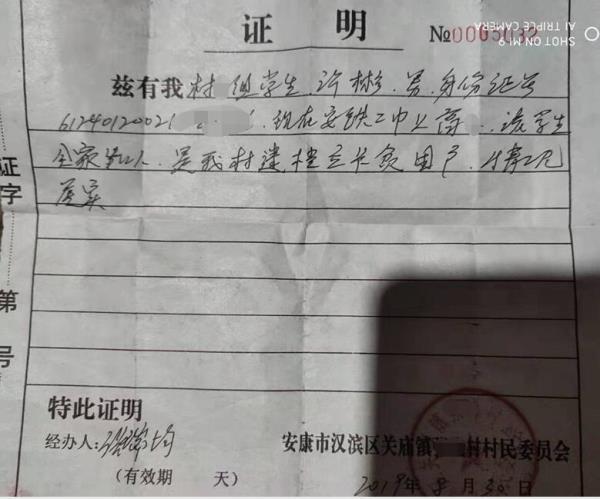 证 明
№0005032
兹有我村 组学生 许彬 男 身份证号
6124012002 现在安铁二中上 该学生
全家 人 是我村建档立卡贫困户 情况
属实
特此证明
经办人:
安康市汉滨区关庙镇 村村民委员会
(有效期 天)
2019年8月30日
证字
第
号
SHOT ON MI 9
AI TRIPLE CAMERA